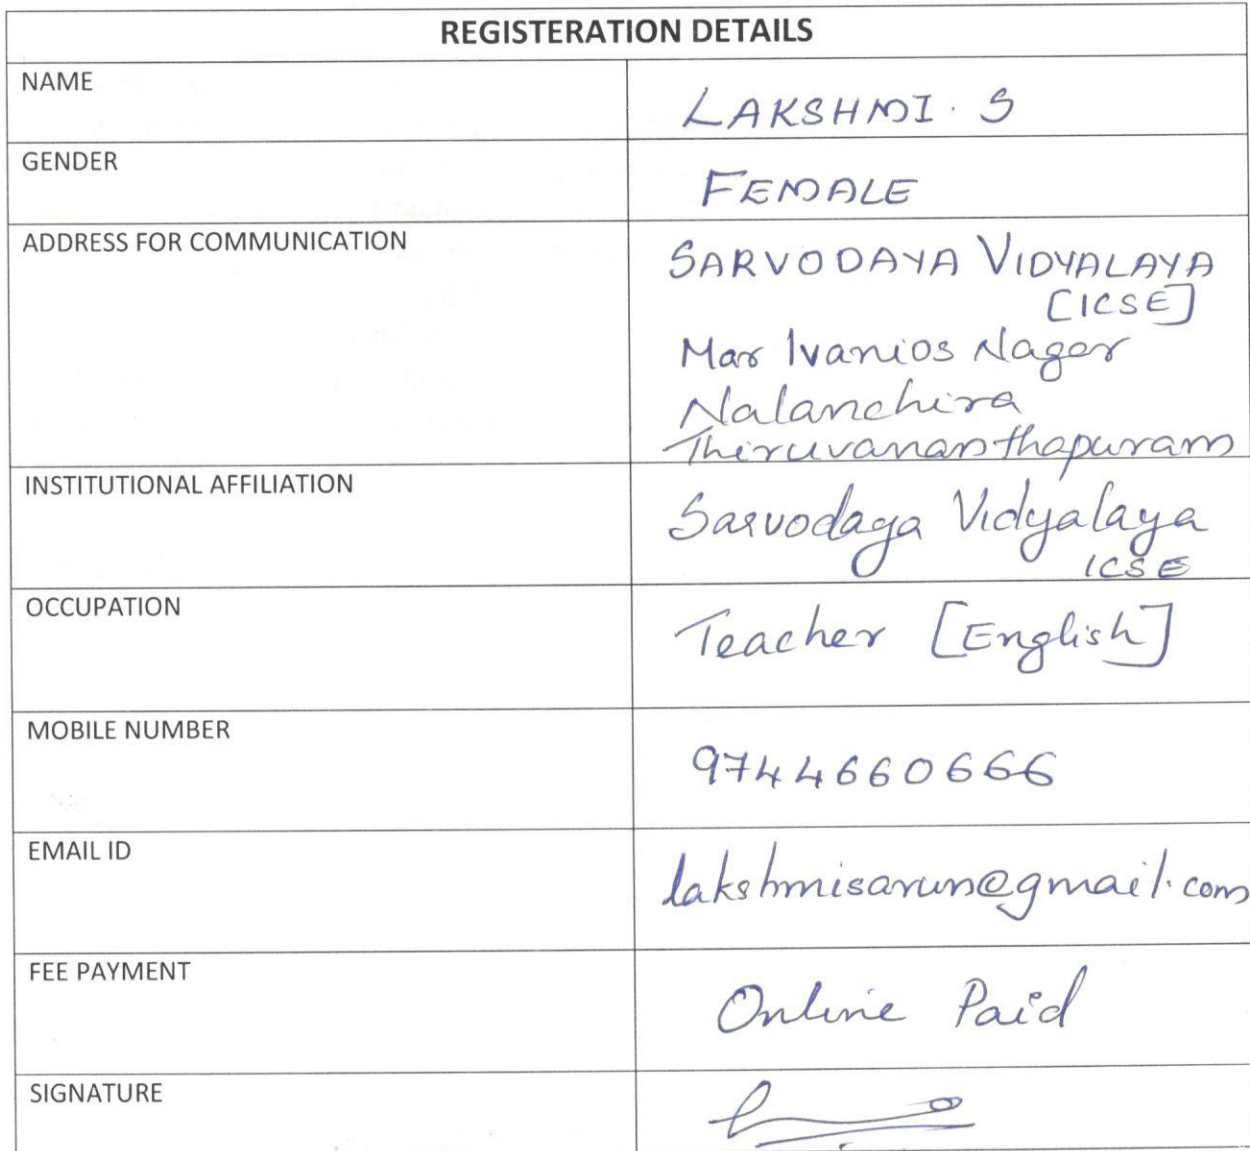 REGISTERATION DETAILS
NAME
LAKSHMI . S
GENDER
FEMALE
ADDRESS FOR COMMUNICATION
SARVODAYA VIDYALAYA
[ICSE]
Mar Ivanios Nagar
Nalanchira
Thiruvananthapuram
INSTITUTIONAL AFFILIATION
Sarvodaya Vidyalaya
ICSE
OCCUPATION
Teacher [English]
MOBILE NUMBER
9744660666
EMAIL ID
lakshmisarun@gmail.com
FEE PAYMENT
Online Paid
SIGNATURE